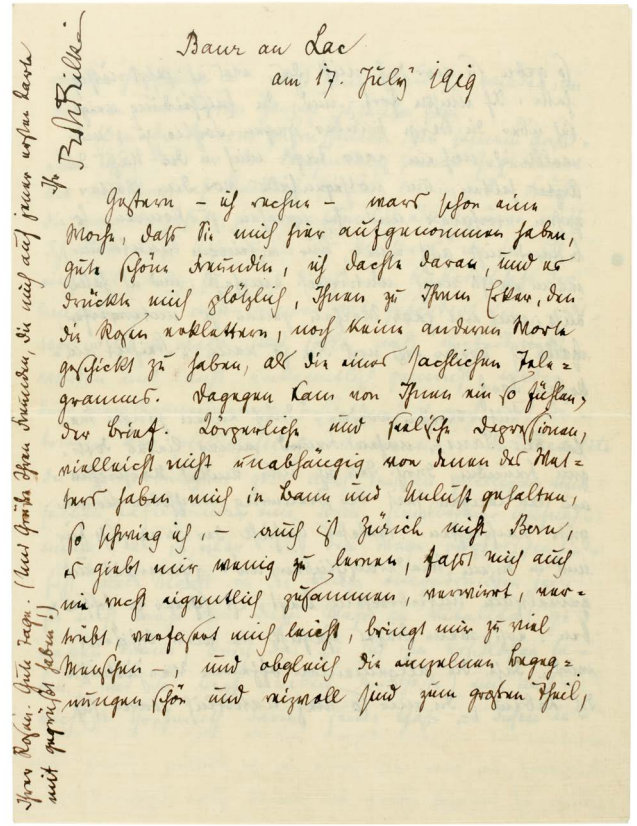 Baur au Lac
am 17. July 1919
Gestern – ich rechne – wars schon eine
Woche, daß Sie mich hier aufgenommen haben,
gute schöne Freundin, ich dachte daran, und es
drückte mich plötzlich, Ihnen zu Ihrem Erker, den
die Rosen erklettern, noch keine anderen Worte
geschickt zu haben, als die eines sachlichen Tele=
gramms. Dagegen kam von Ihnen ein so fühlen,
der Brief. Körperliche und seelische Depressionen,
vielleicht nicht unabhängig von denen des Wet=
ters haben mich in Bann und Unlust gehalten,
so schwieg ich, – auch ist Zürich nicht Bern,
es giebt mir wenig zu lernen, faßt mich auch
nie recht eigentlich zusammen, verwirrt, ver=
trübt, verfasert mich leicht, bringt mir zu viel
Menschen –, und obgleich die einzelnen Begeg=
nungen schön und reizvoll sind zum großen Theil,
Ihrer Rosen. Gute Tage. (Und Grüße Ihren Freunden, die mich auf jener ersten Karte
mit gegrüßt haben!)
Ihr
RMRilke